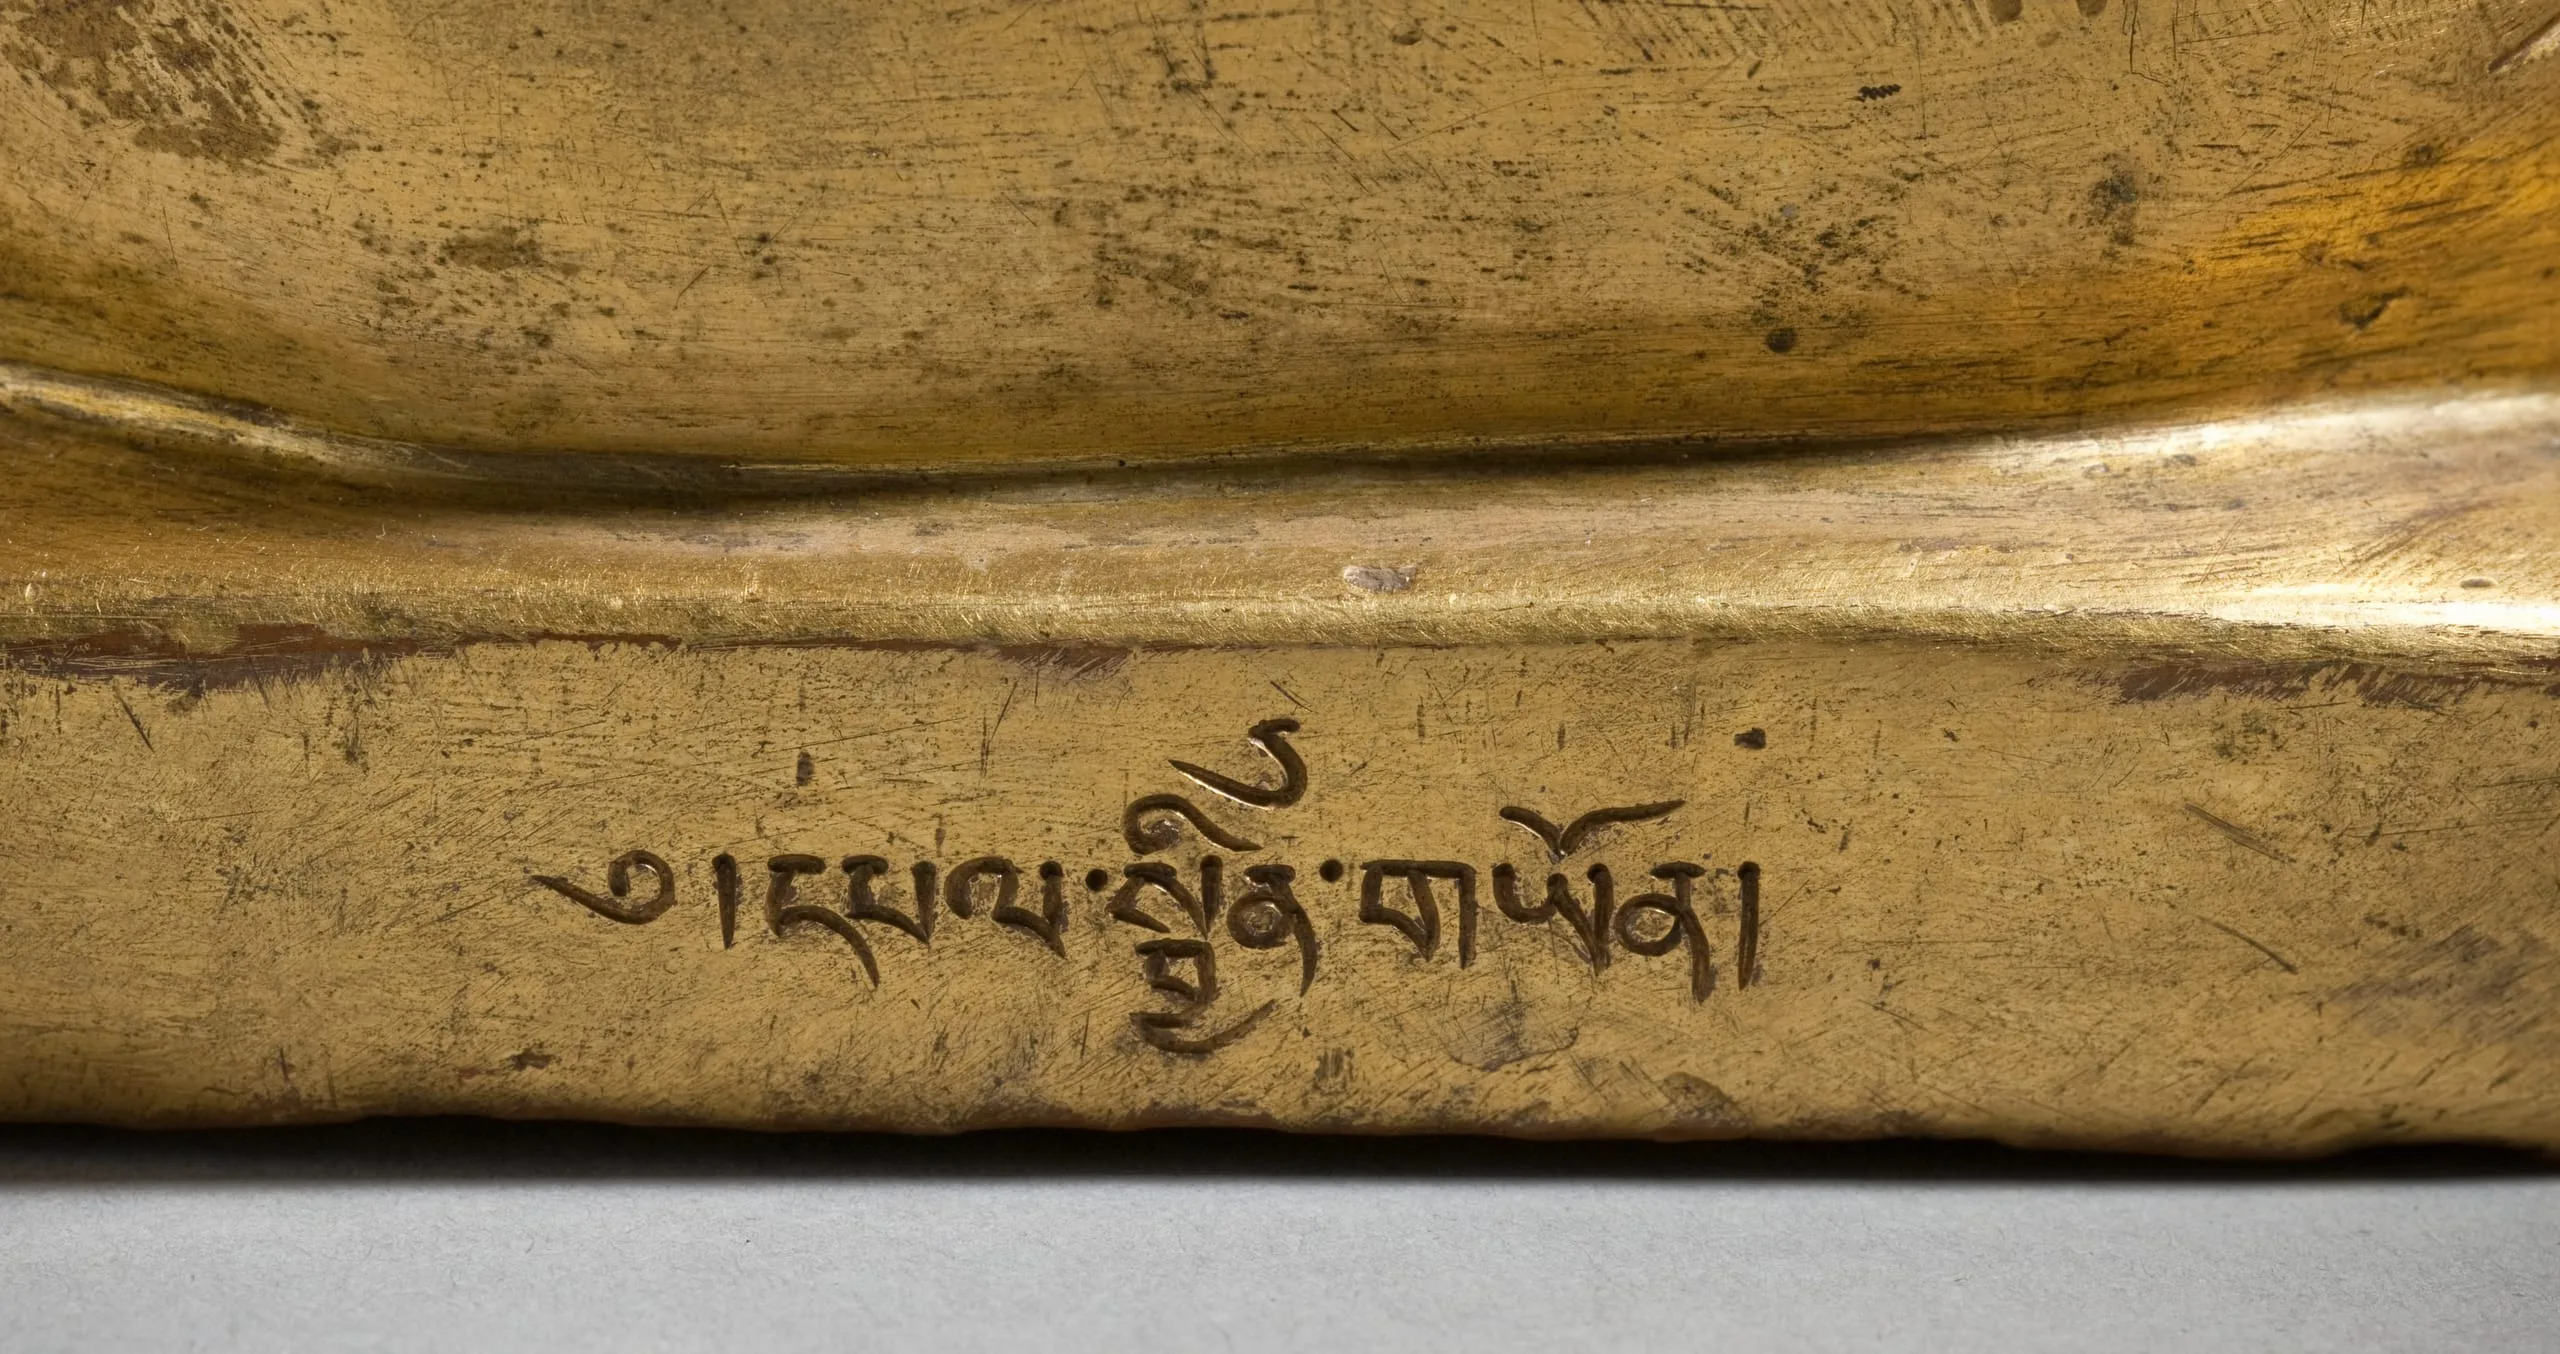 ༄། དཔལ་སྦྱིན་གཡོན།